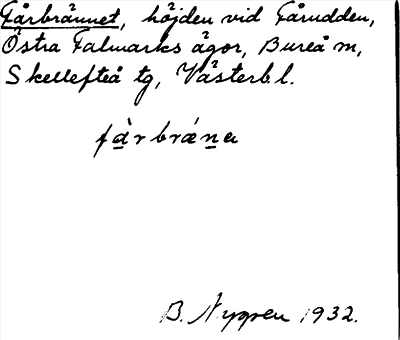 Fårbrännet, höjden vid Fårudden,
Östra Falmarks ägor, Bureå m,
Skellefteå tg, Västerb l.
fàrbrǽna
B. Nygren 1932.